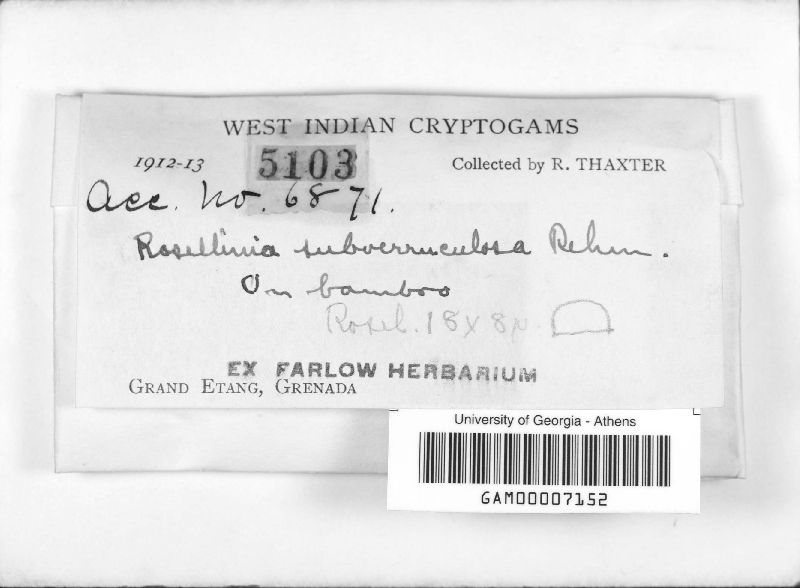 WEST INDIAN CRYPTOGAMS
1912-13 5103 Collected by R. THAXTER
Acc. No. 6871.
Rosellinia subverruculosa Rehm.
On bamboo
Rosel. 18 x 8µ
EX FARLOW HERBARIUM
GRAND ETANG, GRENADA
University of Georgia - Athens
GAM00007152